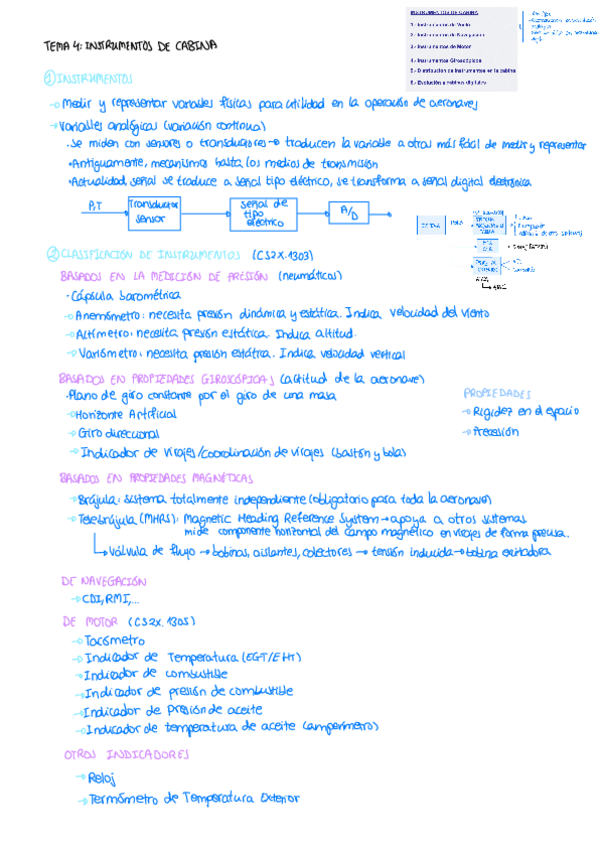 TEMA 4: INSTRUMENTOS DE CABINA
INSTRUMENTOS DE CABINA
1.- Instrumentos de Vuelo
2.- Instrumentos de Navegación
3.- Instrumentos de Motor
4.- Instrumentos Giroscópicos
5.- Distribución de instrumentos en la cabina
6.- Evolución a cabinas digitales
① INSTRUMENTOS
→ Medir y representar variables físicas para utilidad en la operación de aeronaves
→ Variables analógicas (variación continua)
· Se miden con sensores o transductores → traducen la variable a otras más fácil de medir y representar
· Antiguamente, mecanismos hasta los medios de transmisión
· Actualidad, señal se traduce a señal tipo eléctrico, se transforma a señal digital electrónica
P,T
Transductor sensor
señal de tipo eléctrico
A/D
② CLASIFICACIÓN DE INSTRUMENTOS (CS2X.1303)
BASADOS EN LA MEDICIÓN DE PRESIÓN (neumáticos)
· Cápsula barométrica
→ Anemómetro: necesita presión dinámica y estática. Indica velocidad del viento
→ Altímetro: necesita presión estática. Indica altitud.
→ Variómetro: necesita presión estática. Indica velocidad vertical
BASADOS EN PROPIEDADES GIROSCÓPICAS (actitud de la aeronave)
· Plano de giro constante por el giro de una masa
→ Horizonte Artificial
→ Giro direccional
→ Indicador de virajes/coordinación de virajes (bastón y bola)
PROPIEDADES
→ Rigidez en el espacio
→ Precesión
BASADOS EN PROPIEDADES MAGNÉTICAS
→ Brújula: sistema totalmente independiente (obligatorio para toda la aeronave)
→ Telebrújula (MHRS): Magnetic Heading Reference System → apoya a otros sistemas
mide componente horizontal del campo magnético en virajes de forma precisa.
↳ Válvula de flujo → bobinas, aislantes, colectores → tensión inducida → bobina excitadora
DE NAVEGACIÓN
→ CDI, RMI,...
DE MOTOR (CS2X.1305)
→ Tacómetro
→ Indicador de Temperatura (EGT/EHT)
→ Indicador de combustible
→ Indicador de presión de combustible
→ Indicador de Presión de aceite
→ Indicador de temperatura de aceite (amperímetro)
OTROS INDICADORES
→ Reloj
→ Termómetro de Temperatura Exterior